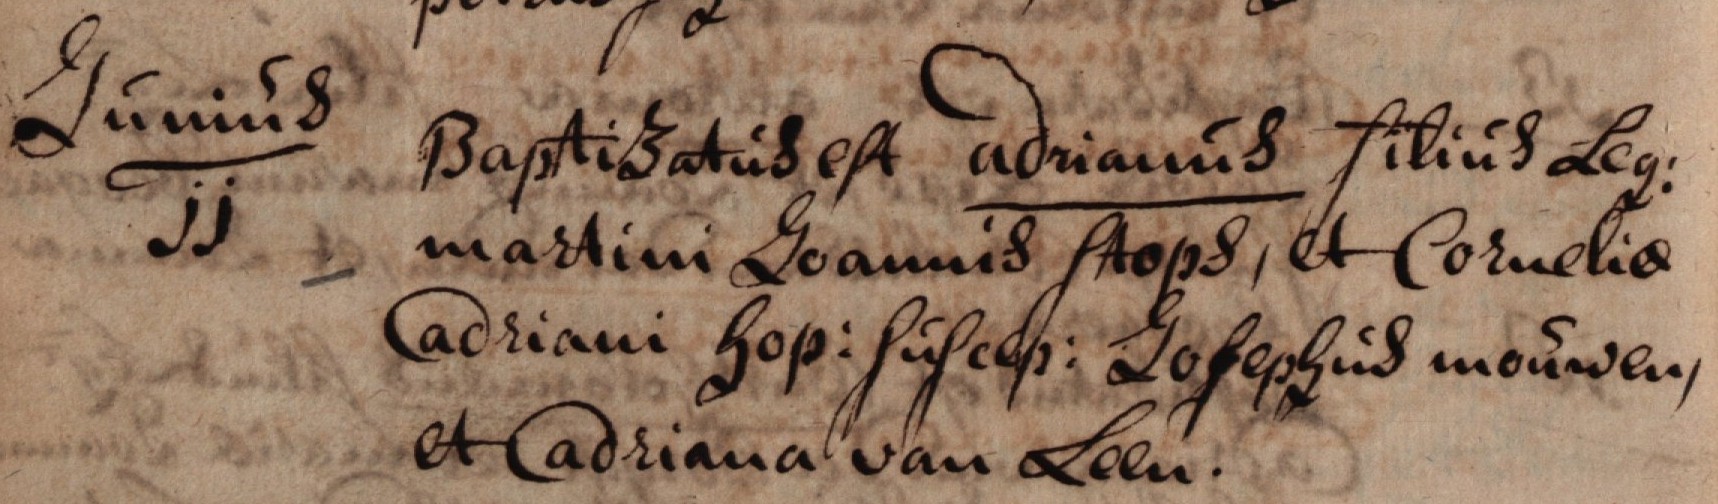 Junius
jj
Baptizatus est Adrianus filius Leg:
martini Joannis stops, et Corneliæ
Adriani hop: suscep: Josephus mouwen,
et Adriana van Leen.